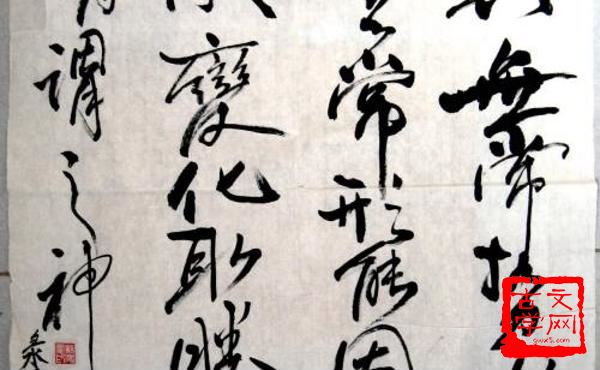 無常势
常形能因
變化取勝
謂之神
古文
学网
gwx5.com